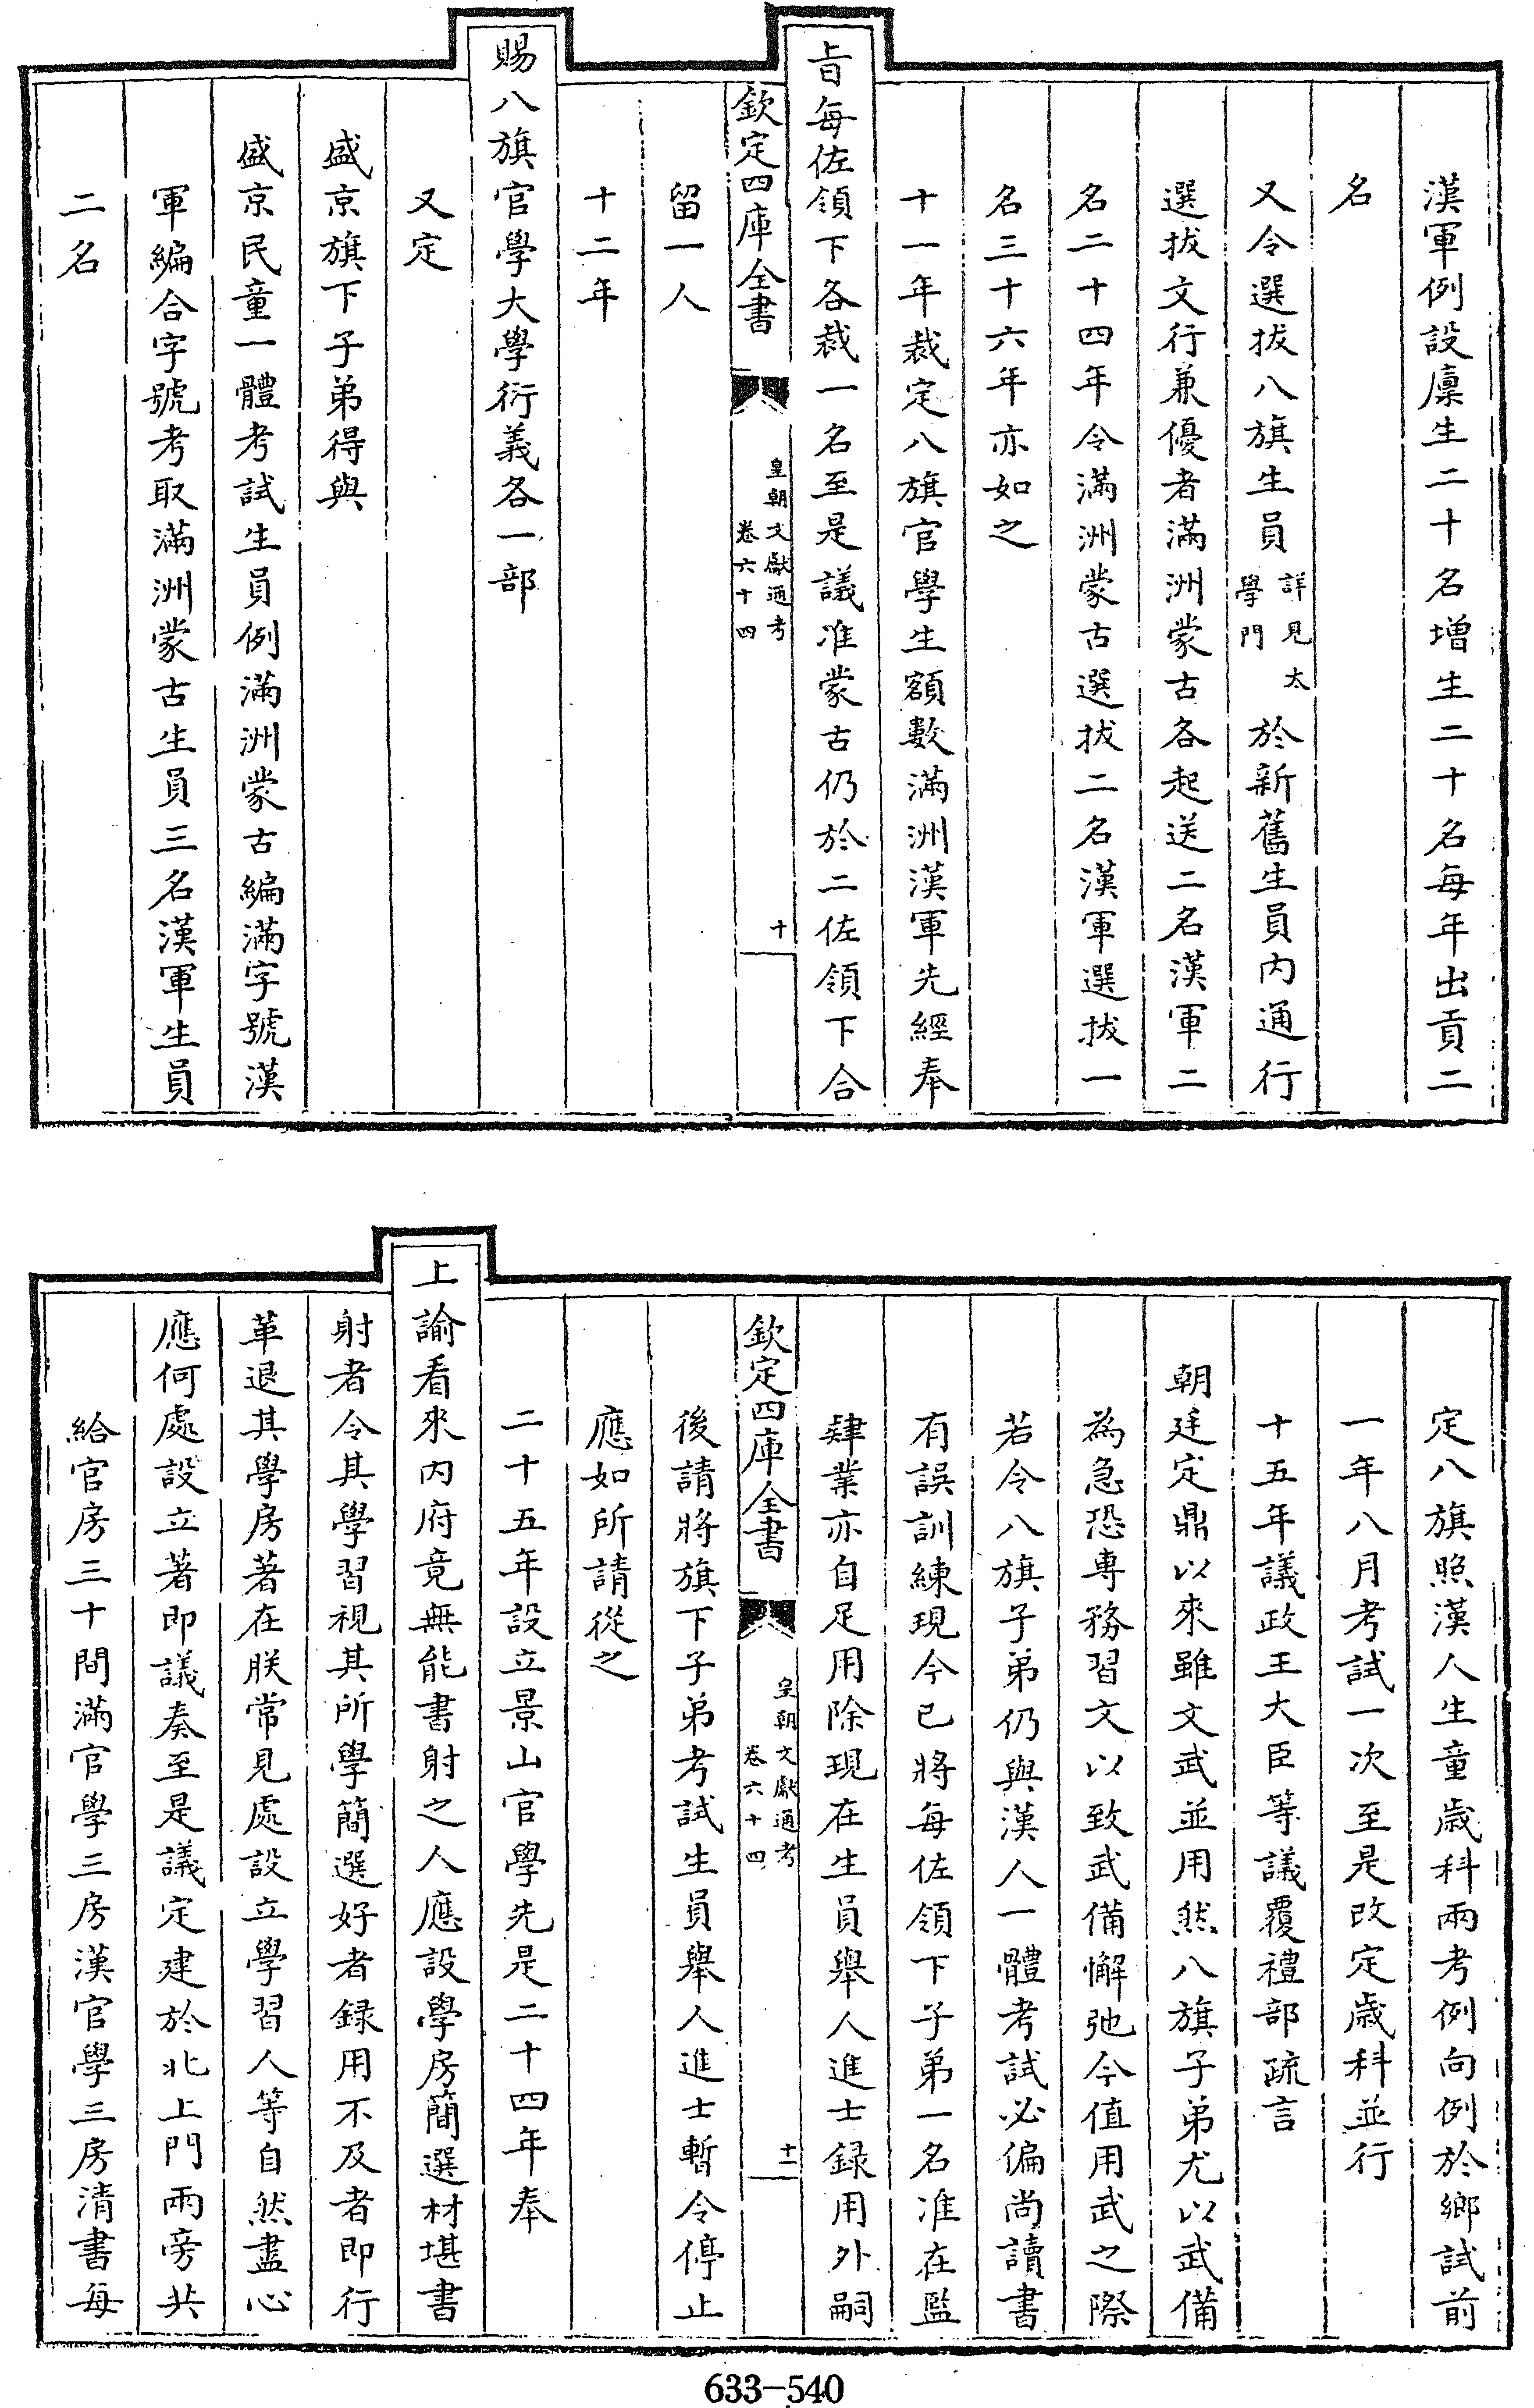 漢軍例設廩生二十名增生二十名每年出貢二
名
又令選拔八旗生員詳見太學門於新舊生員內通行
選拔文行兼優者滿洲蒙古各起送二名漢軍二
名二十四年令滿洲蒙古選拔二名漢軍選拔一
名三十六年亦如之
十一年裁定八旗官學生額數滿洲漢軍先經奉
旨每佐領下各裁一名至是議准蒙古仍於二佐領下合
欽定四庫全書 皇朝文獻通考 卷六十四 十
留一人
十二年
賜八旗官學大學衍義各一部
又定
盛京旗下子弟得與
盛京民童一體考試生員例滿洲蒙古編滿字號漢
軍編合字號考取滿洲蒙古生員三名漢軍生員
二名
定八旗照漢人生童歲科兩考例向例於鄉試前
一年八月考試一次至是改定歲科並行
十五年議政王大臣等議覆禮部疏言
朝廷定鼎以來雖文武並用然八旗子弟尤以武備
為急恐專務習文以致武備懈弛今值用武之際
若令八旗子弟仍與漢人一體考試必偏尚讀書
有誤訓練現今已將每佐領下子弟一名准在監
肄業亦自足用除現在生員舉人進士録用外嗣
欽定四庫全書 皇朝文獻通考 卷六十四 十一
後請將旗下子弟考試生員舉人進士暫令停止
應如所請從之
二十五年設立景山官學先是二十四年奉
上諭看來內府竟無能書射之人應設學房簡選材堪書
射者令其學習視其所學簡選好者録用不及者即行
革退其學房著在朕常見處設立學習人等自然盡心
應何處設立著即議奏至是議定建於北上門兩旁共
給官房三十間滿官學三房漢官學三房清書每
633-540